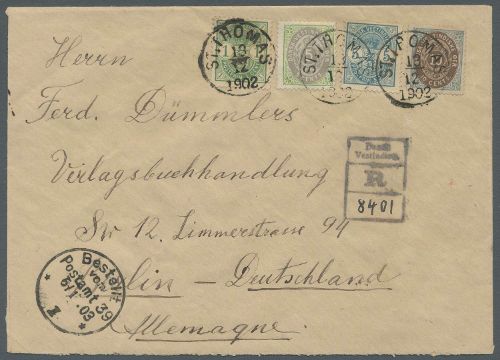 ST. THOMAS
13
12
1902
ST. THOM
13
12
1902
ST. THOM
13
12
1902
Herrn
Ferd. Dümmlers
Verlagsbuchhandlung
Dansk
Vestindien
R
8401
SW 12. Zimmerstrasse 94
Berlin - Deutschland
Allemagne.
Bestellt
vom
Postamt 39
6/1 03